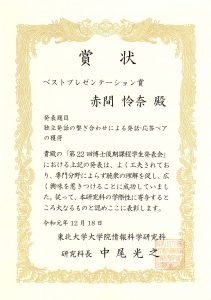 賞状
ベストプレゼンテーション賞
赤間 怜奈 殿
発表題目
独立発話の繋ぎ合わせによる発話・応答ペア
の獲得
貴殿の「第22回博士後期課程学生発表会」
における上記の発表は、よく工夫されてお
り、専門分野によらず聴衆の理解を促し、広
く興味を惹きつけることに成功していまし
た。従って、本研究科の学際性に寄与すると
ころ大なるものと認めここに表彰します。
令和元年12月18日
東北大学大学院情報科学研究科
研究科長 中尾光之